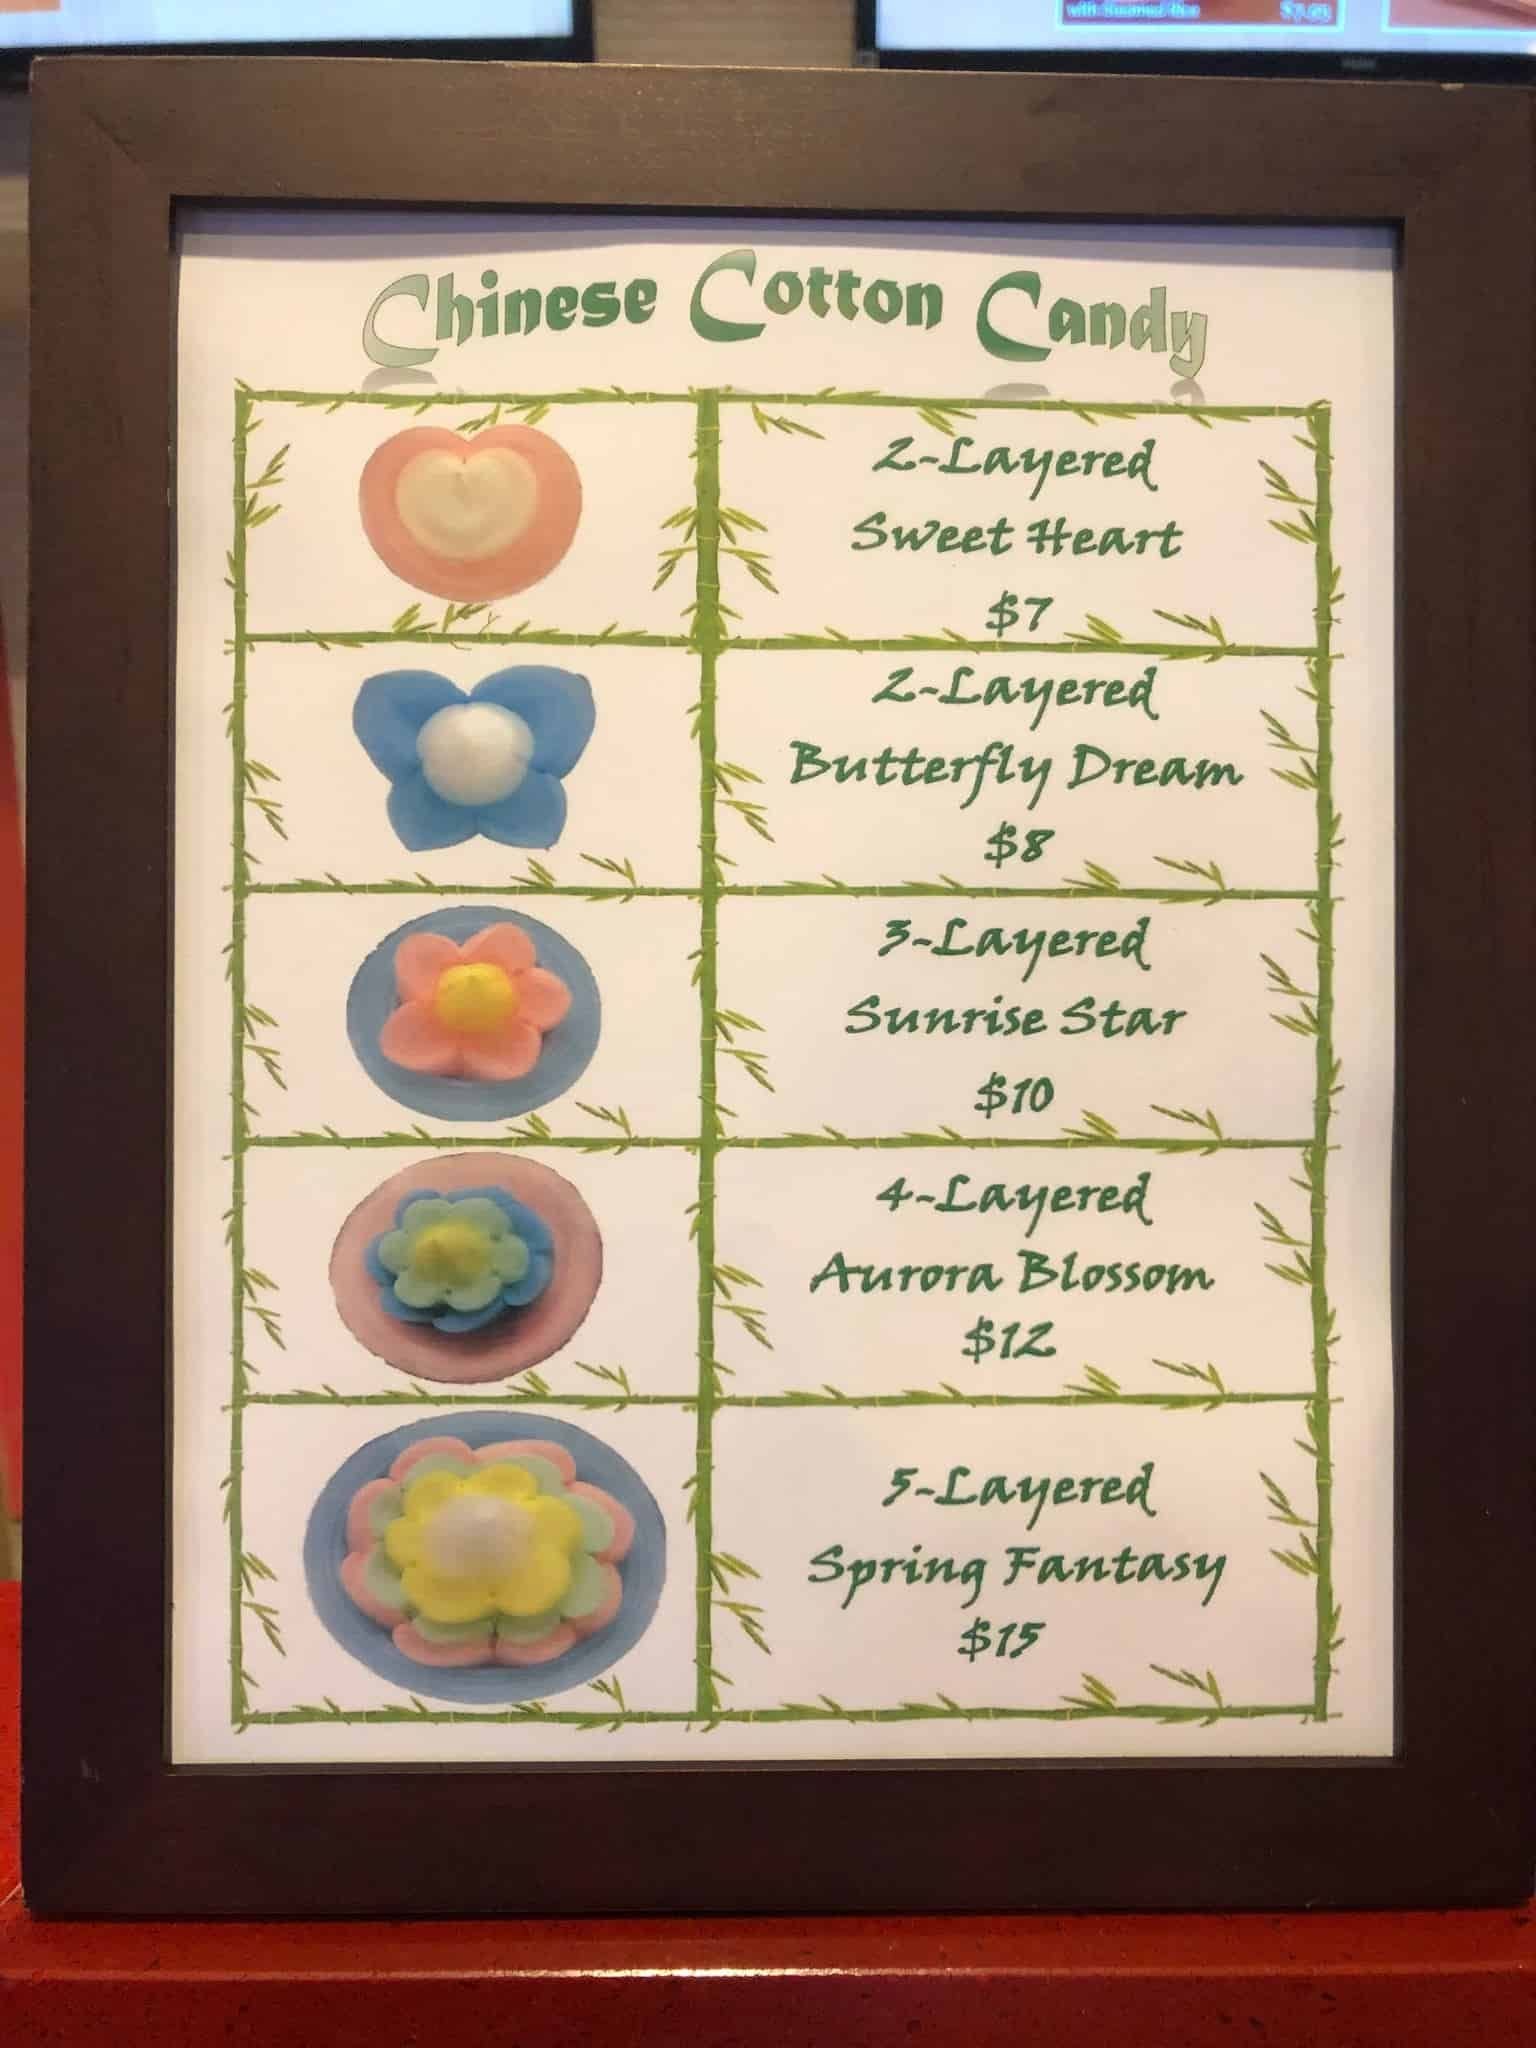 with Steamed Rice
Chinese Cotton Candy
2-Layered
Sweet Heart
$7
2-Layered
Butterfly Dream
$8
3-Layered
Sunrise Star
$10
4-Layered
Aurora Blossom
$12
5-Layered
Spring Fantasy
$15